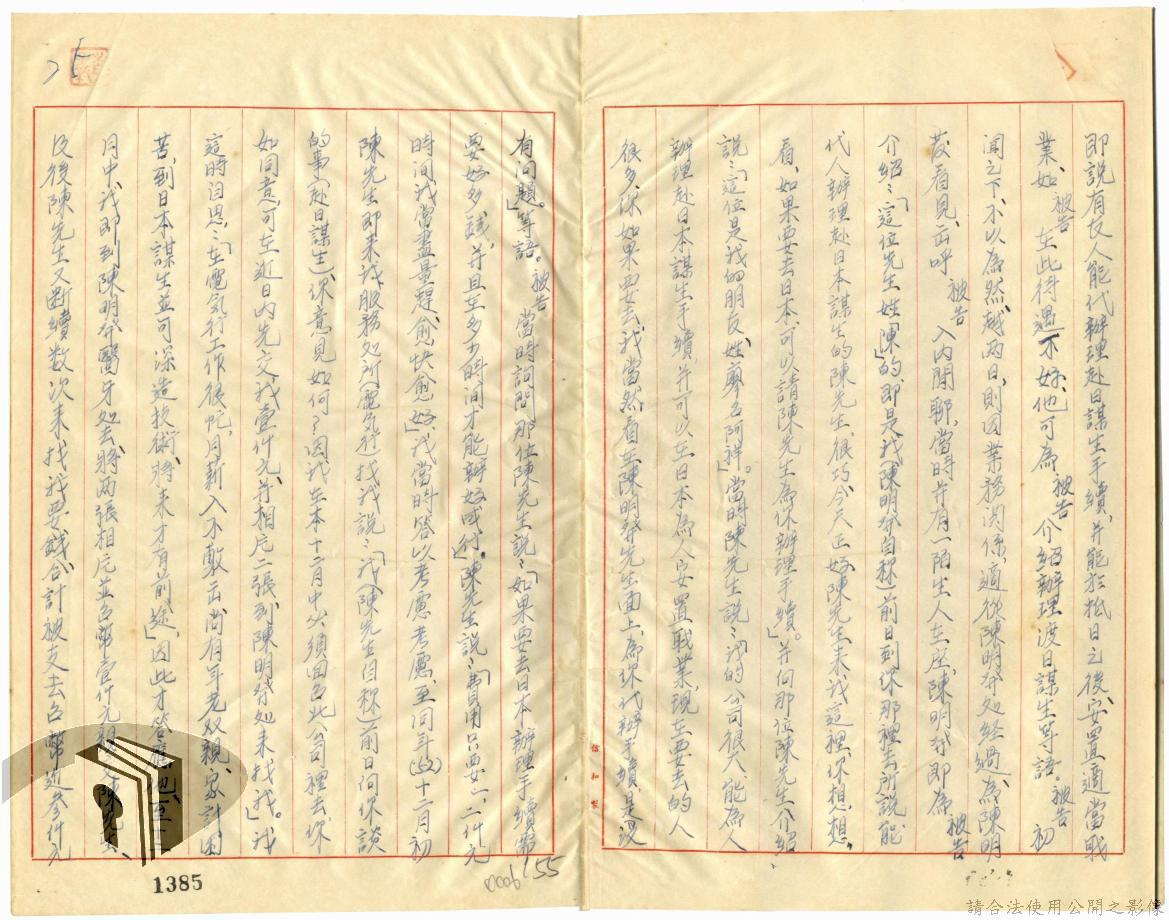 即說有友人能代辦理赴日謀生手續、并能於抵日之後、安置適當職
業、如被告在此待遇不好、他可為被告介紹辦理渡日謀生等語。被告初
聞之下、不以為然、越兩日、則因業務関係、適從陳明發処経過、為陳明
發看見、出呼被告入內閒聊、當時并有一陌生人在座、陳明發即為被告
介紹:「這位先生姓「陳」的即是我(陳明發自称)前日到你那裡去所說能
代人辦理赴日本謀生的陳先生、很巧、今天正好陳先生来我這裡、你想想
看、如果要去日本、可以請陳先生為你辦理手續」。并向那位陳先生介紹
說:「這位是我的朋友、姓廖名阿祥」。當時陳先生說:「我的公司很大、能為人
辦理赴日本謀生手續、并可以在日本為人安置職業、現在要去的人
很多、你如果要去、我當然看在陳明發先生面上、為你代辦手續是沒
有問題」等語。被告當時詞問那位陳先生說:「如果要去日本、辦理手續需
要好多錢、并且至多少時间才能辦好成行」。陳先生說:「費用只要一、二仟元
時间我當盡量趕、愈快愈好」、我當時答以考慮考慮、至同年(四二)十二月初
陳先生即来我服務処所(電気行)找我說:「我(陳先生自称)前日问你談
的事(赴日謀生)、你意見如何?因我在本十二月中必須回台北公司裡去、你
如同意、可在近日內先交我壹仟元、并相片二張到陳明發処来找我」。我
這時自思:「在電気行工作很忙、月薪入不敷出、尚有年老双親、家計困
苦、到日本謀生並可深造技術、將来才有前途」、因此才答應他、至十二
月中、我即到陳明發醫牙処去、將两張相片並台幣壹仟元親交陳先生、
以後陳先生又断續数次来找我要錢、合計被支去台幣近參仟元
1385
0006
155
請合法使用公開之影像